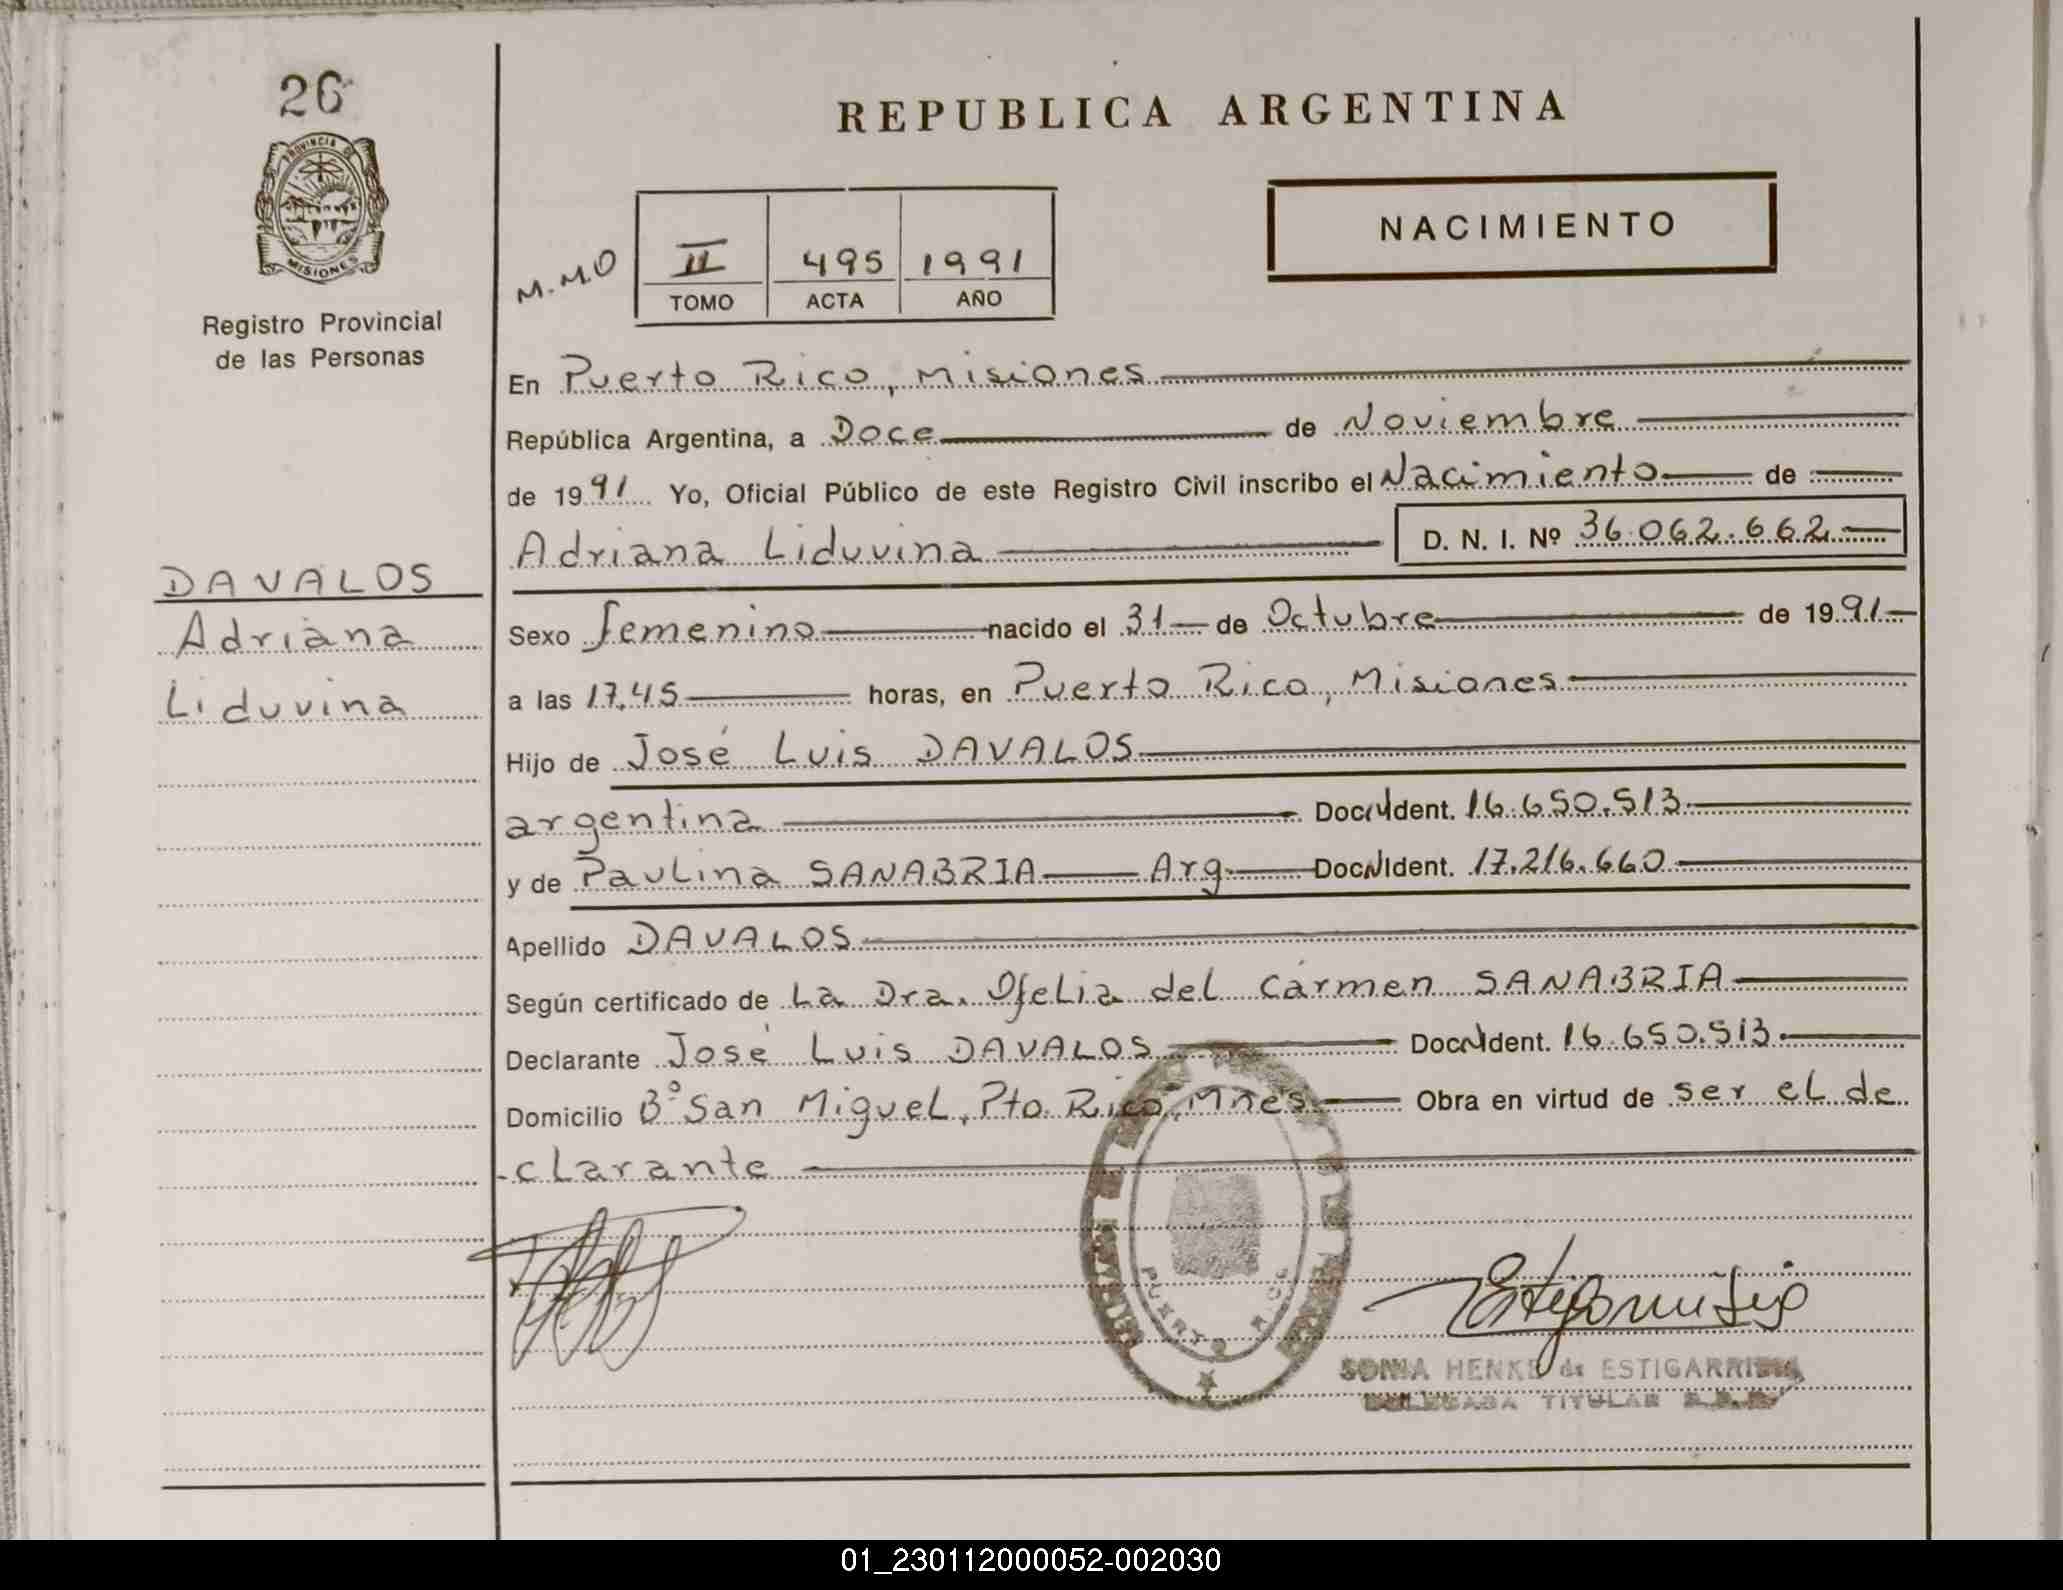 26
PROVINCIA DE
MISIONES
Registro Provincial
de las Personas
DAVALOS
Adriana
Liduvina
REPUBLICA ARGENTINA
NACIMIENTO
M.M.O
II 495 1991
TOMO ACTA AÑO
En Puerto Rico, Misiones
República Argentina, a Doce de Noviembre
de 1991 Yo, Oficial Público de este Registro Civil inscribo el Nacimiento de
Adriana Liduvina D. N. I. Nº 36.062.662
Sexo femenino nacido el 31 de Octubre de 1991
a las 17,45 horas, en Puerto Rico, Misiones
Hijo de José Luis DAVALOS
argentina Doc. Ident. 16.650.513
y de Paulina SANABRIA Arg Doc. Ident. 17.216.660
Apellido DAVALOS
Según certificado de La Dra. Ofelia del Carmen SANABRIA
Declarante José Luis DAVALOS Doc. Ident. 16.650.513
Domicilio Bº San Miguel, Pto. Rico, Mnes Obra en virtud de ser el de
-clarante
PUERTO RICO
SONIA HENKE de ESTIGARRIBIA
DELEGADA TITULAR
01_230112000052-002030